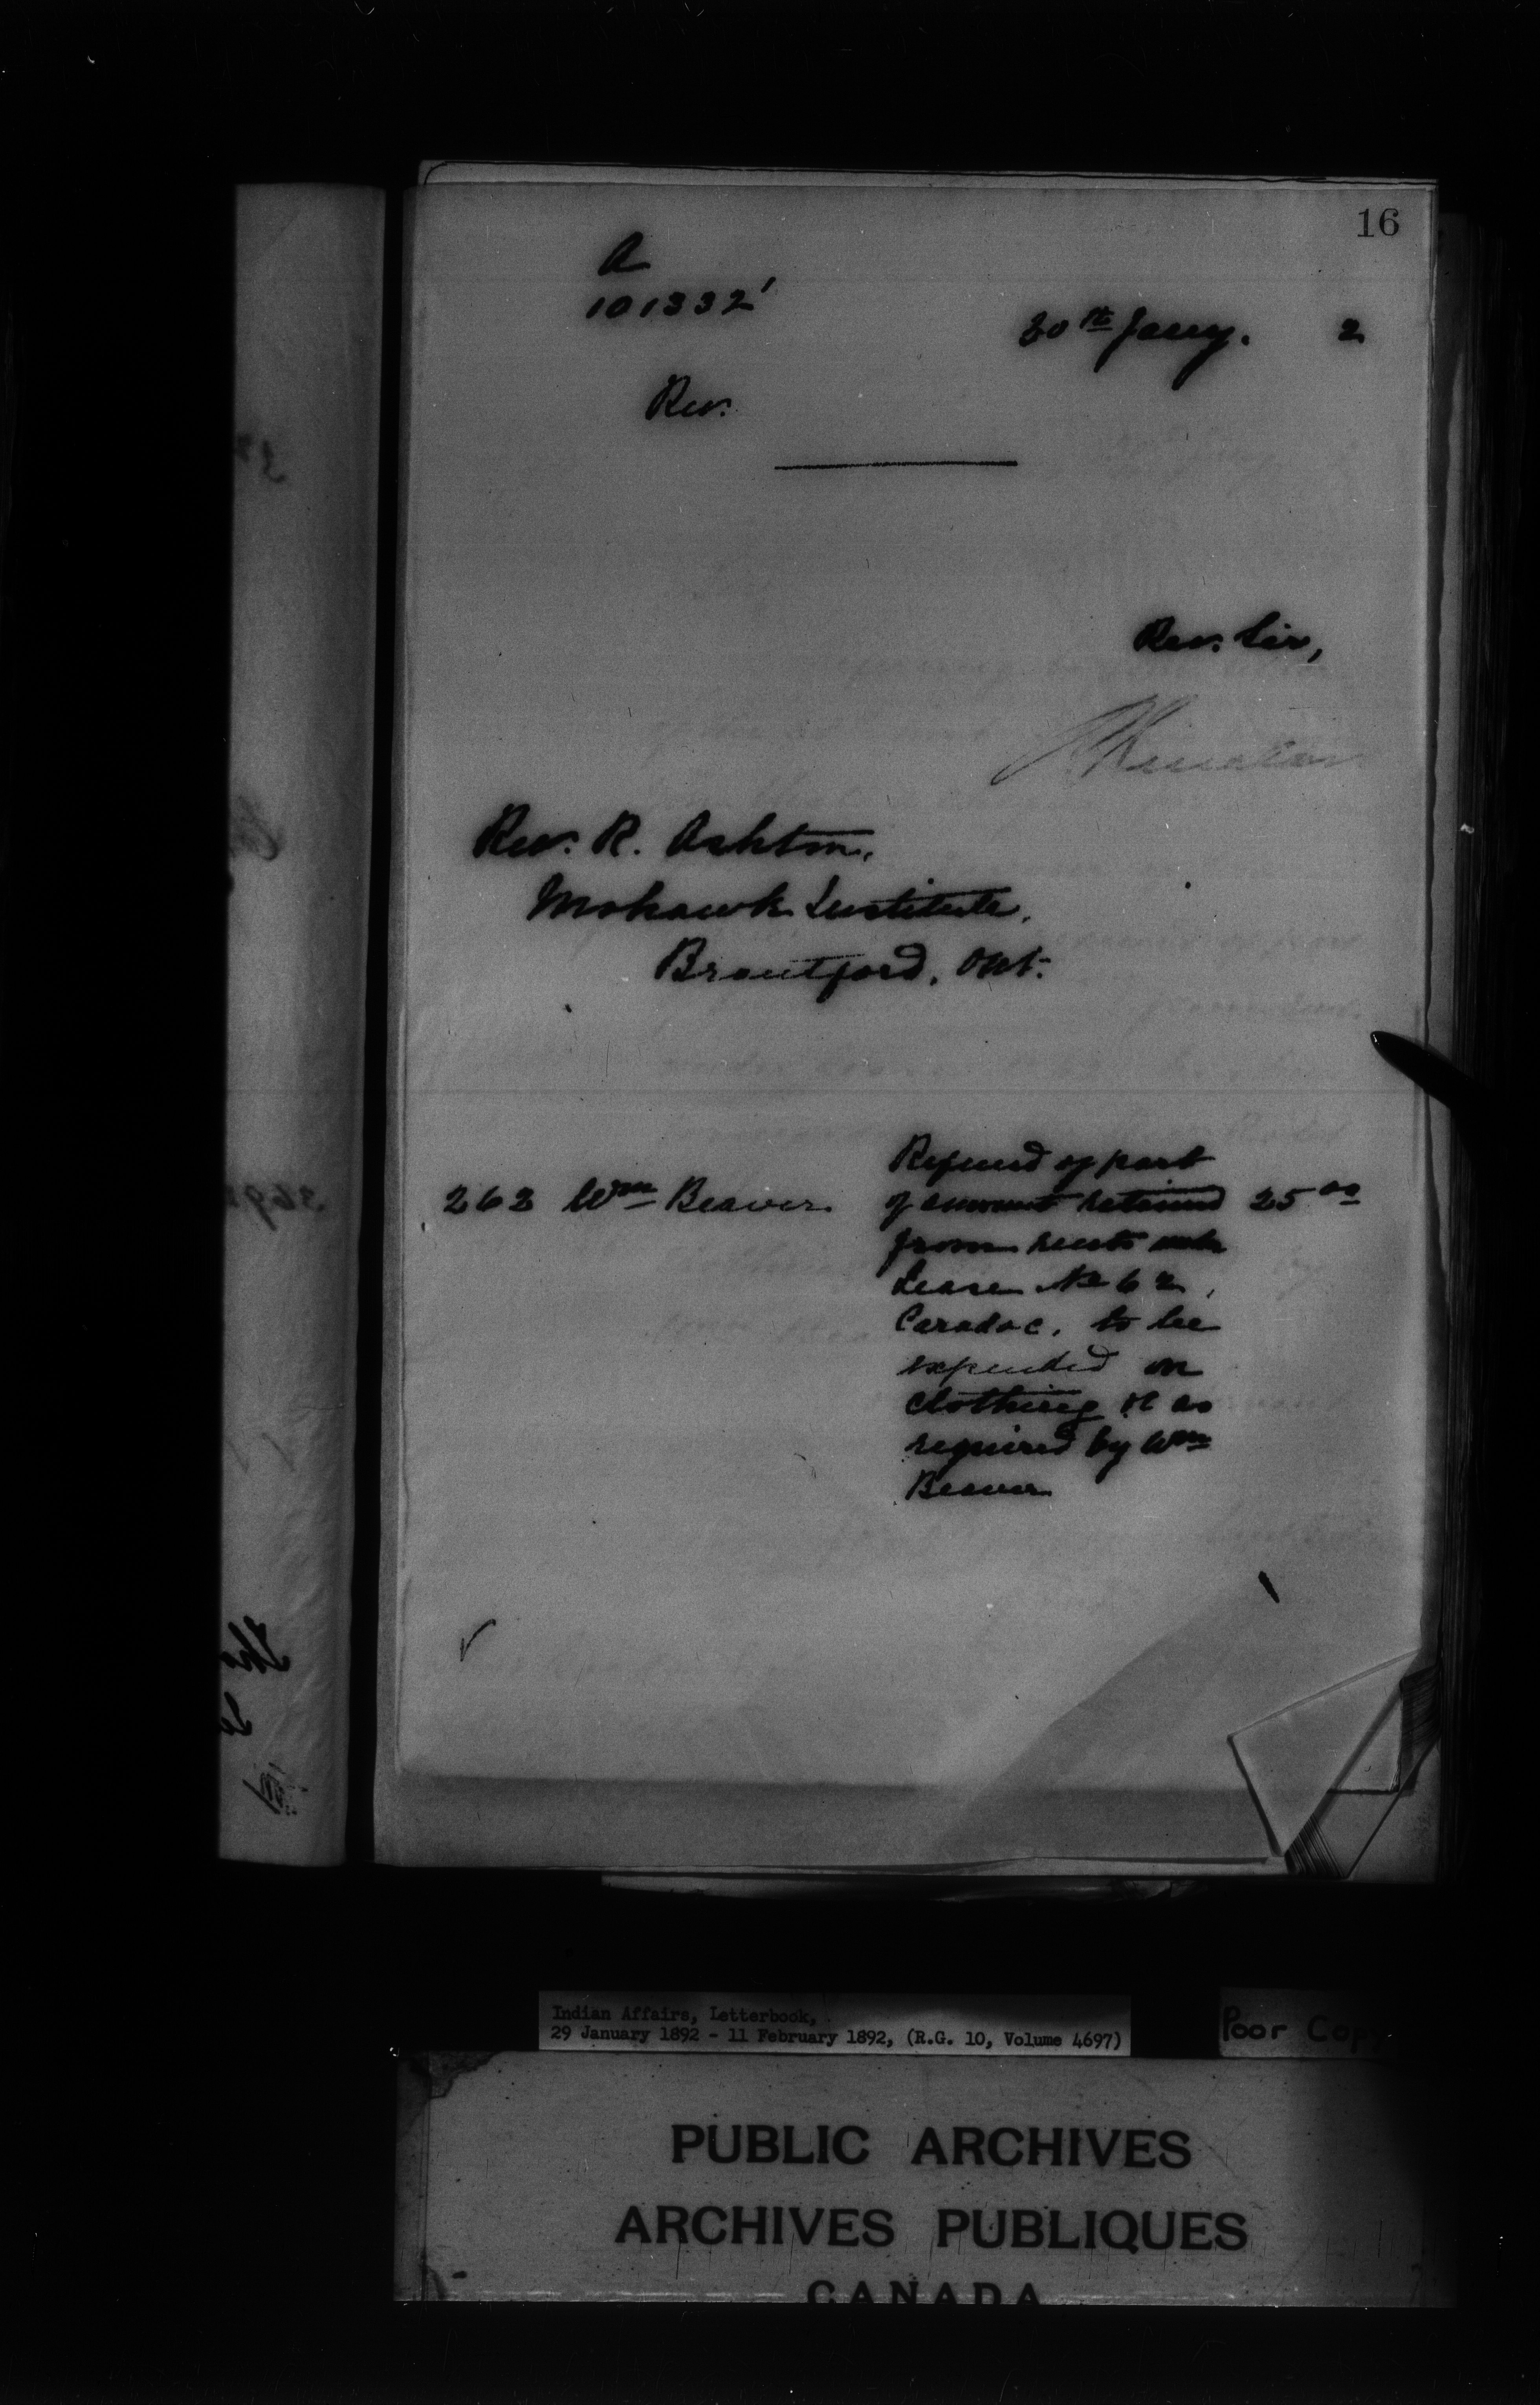 16
A
101332
30th Jany. 2
Rev.
Rev. Sir,
Rev. R. Ashton,
Mohawk Institute,
Brantford, Ont.
Refund of part
262 Wm Beaver of amount retained 25 00
from rents under
Lease No 62,
Caradoc, to be
expended on
clothing &c as
required by Wm
Beaver
Indian Affairs, Letterbook,
29 January 1892 - 11 February 1892, (R.G. 10, Volume 4697)
Poor Copy
PUBLIC ARCHIVES
ARCHIVES PUBLIQUES
CANADA